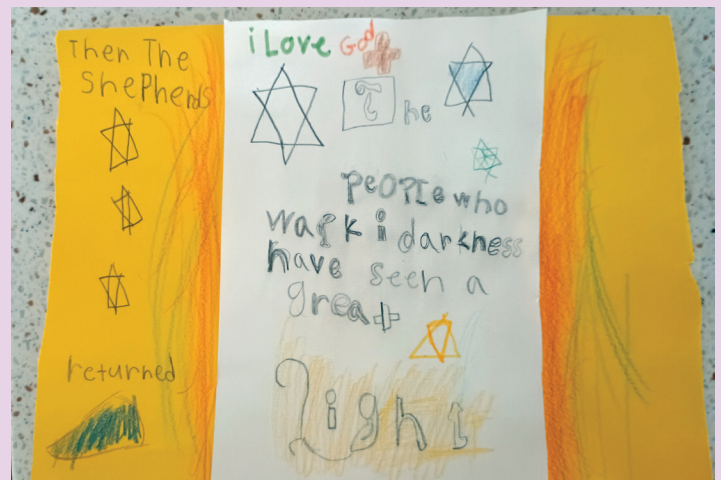 Then The
Shepherds
returned
i Love God
The
people who
walk i darkness
have seen a
great
Light